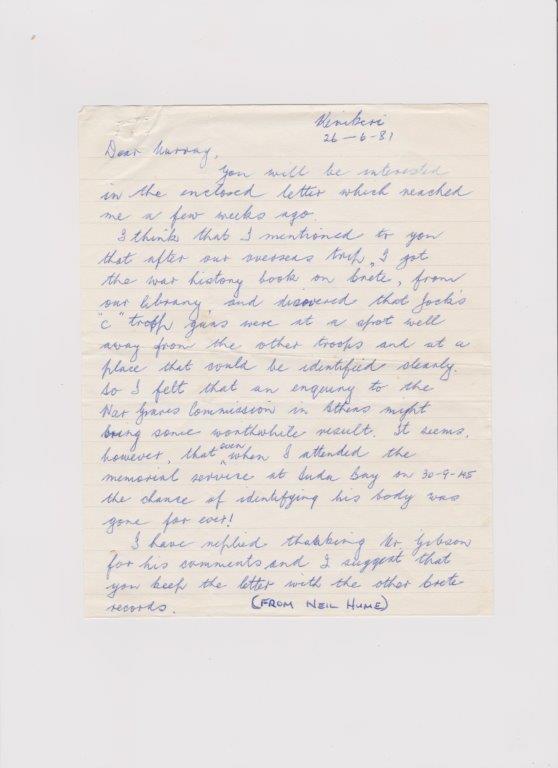 Kerikeri
26-6-81
Dear Murray,
You will be interested
in the enclosed letter which reached
me a few weeks ago.
I think that I mentioned to you
that after our overseas trip, I got
the war history book on Crete, from
our library and discovered that Jock's
"C" troop guns were at a spot well
away from the other troops and at a
place that could be identified clearly.
So I felt that an enquiry to the
War Graves Commission in Athens might
bring some worthwhile result. It seems,
however, that even when I attended the
memorial service at Suda Bay on 30-9-45
the chance of identifying his body was
gone for ever!
I have replied thanking Mr. Gibson
for his comments and I suggest that
you keep the letter with the other Crete
records. (FROM NEIL HUME)